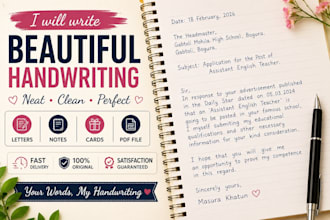 I will write
BEAUTIFUL
HANDWRITING
Neat • Clean • Perfect
LETTERS
NOTES
CARDS
PDF FILE
FAST
DELIVERY
100%
ORIGINAL
SATISFACTION
GUARANTEED
Your Words, My Handwriting
Date: 18 February, 2026
The Headmaster,
Gabtoli Mohila High School, Bogura.
Gabtoli, Bogura.
Subject: Application for the Post of
Assistant English Teacher.
Sir,
In response to your advertisement published
in the Daily Star dated on 05.03.2024
that an "Assistant English Teacher" is
going to be posted in your school,
I myself submitting my educational
qualifications and other necessary
information for your kind consideration.
I hope that you will give me
an opportunity to prove my competence
in this regard.
Sincerely yours,
Masura Khatun